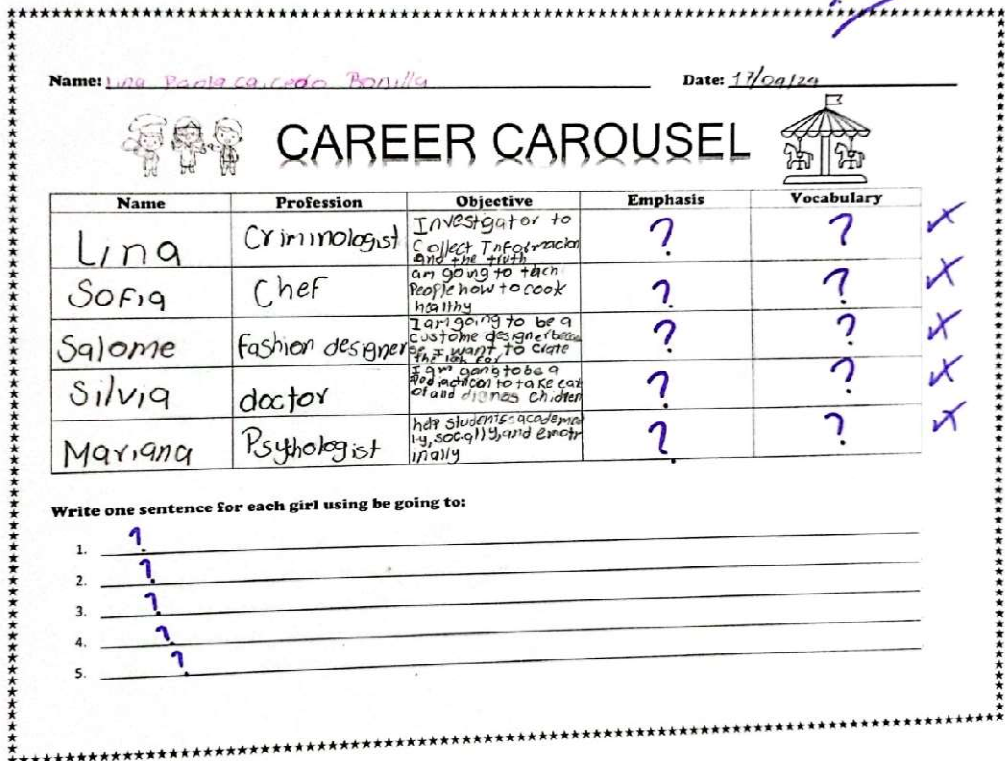 Name: Lina Paola Caicedo Bonilla Date: 17/09/24
CAREER CAROUSEL
Name Profession Objective Emphasis Vocabulary
Lina Criminologist Investigator to ? ?
Collect Information
and the truth
Sofia Chef am going to tach ? ?
People how to cook
healthy
Salome Fashion designer I am going to be a ? ?
custome designer
I want to crate
the
Silvia doctor I am gong to be a ? ?
to take car
of and dignos children
Mariana Psychologist help students academic ? ?
ly, socally, and emoti
inally
Write one sentence for each girl using be going to:
1. ?
2. ?
3. ?
4. ?
5. ?